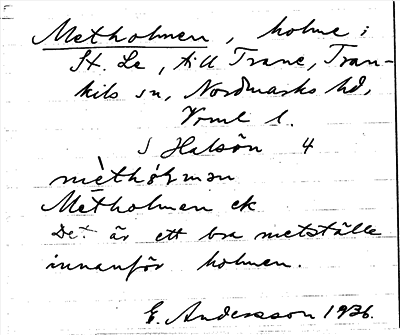 Metholmen, holme i
St. Le, till Trane, Tran-
kils sn, Nordmarks hd,
Vrml l.
S Halsön 4
mèthòɫmən
Metholmen ek
Det är ett bra metställe
innanför holmen.
E. Andersson 1936.